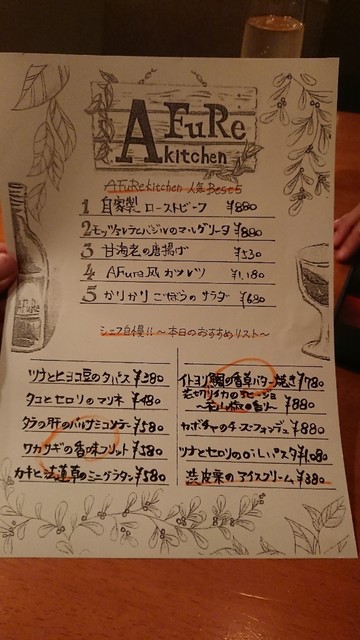 AFuRe
kitchen
AFuRe kitchen 人気 Best5
1 自家製 ローストビーフ ¥880
2 モッツァレラとバジルのマルゲリータ ¥880
3 甘海老の唐揚げ ¥530
4 AFuRe風カツレツ ¥1,180
5 かりかりごぼうのサラダ ¥680
シェフ自慢!!～本日のおすすめリスト～
ツナとヒヨコ豆のタパス ¥380
タコとセロリのマリネ ¥480
タラの肝のバルサミコソテー ¥580
ワカサギの香味フリット ¥580
カキと法蓮草のミニグラタン ¥580
イトヨリ鯛の香草バター焼き ¥780
¥880
カボチャのチーズフォンデュ ¥880
ツナとセロリのOiLパスタ ¥1,080
渋皮栗のアイスクリーム ¥380
AFuRe